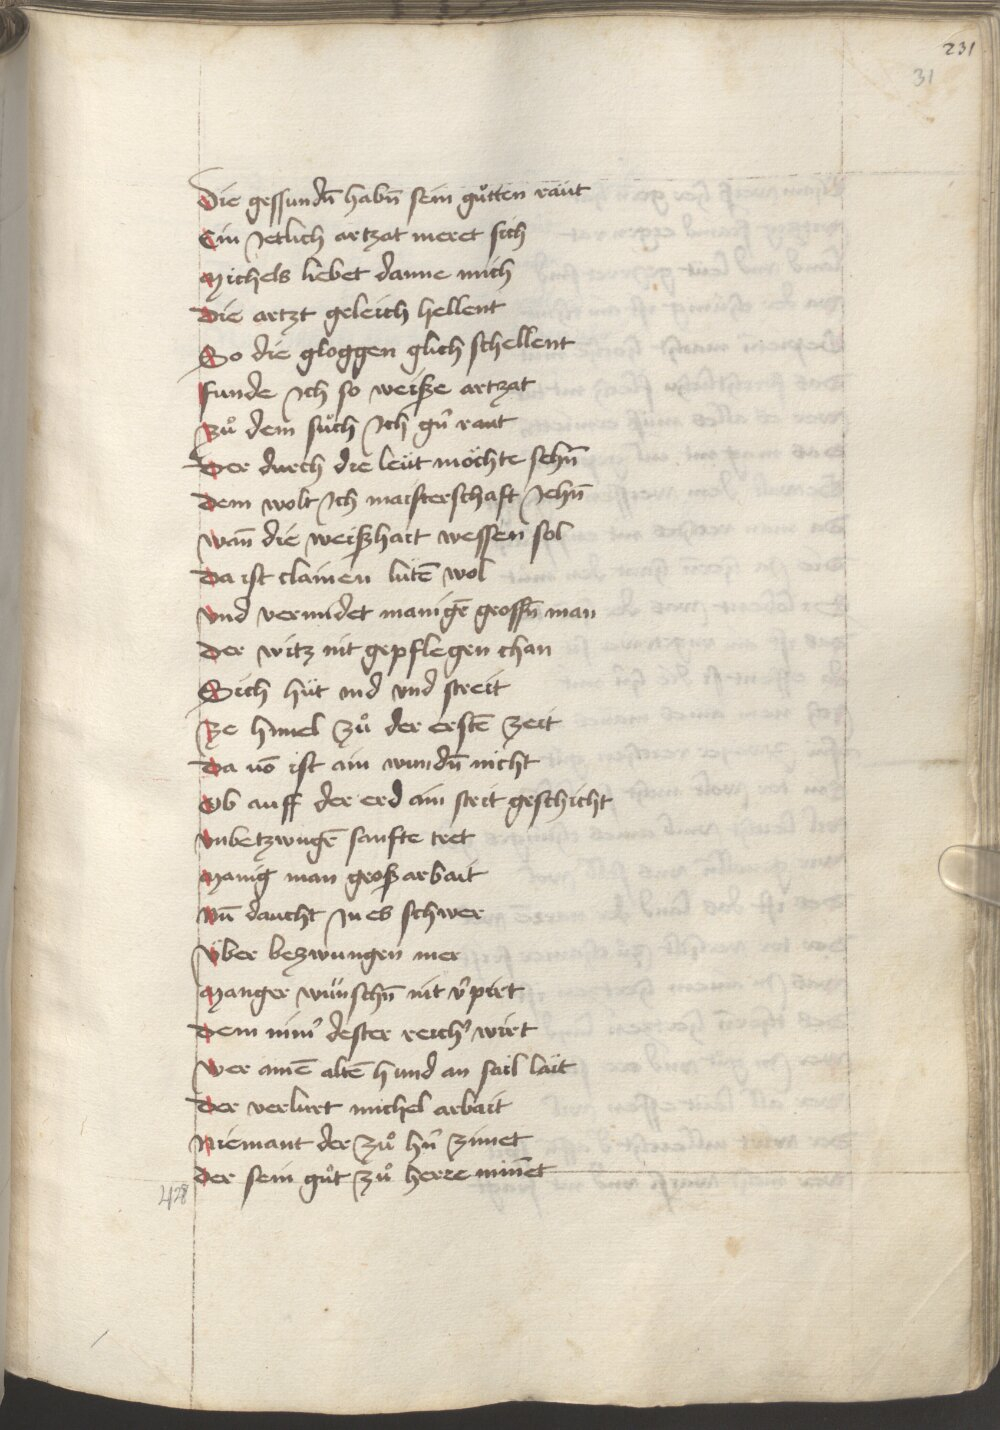 231
31
Die gessundn̄ habn̄ sein gůtten raut
Ein Jetlich artzat neret sich
Michels liebet danne mich
Die artzt geleich hellent
So die gloggen glich schellent
funde Ich so weisze artzat
Zů dem sůch Ich gn̄ raut
Der durch die leüt möchte sehn̄
Dem wolt Ich maisterschaft Jehn̄
wan̄ die weiszhait wessen sol
Da ist clainen lutē wol
Vnd vermidet manigē grossn̄ man
Der witz nit gepflegen chan
Sich hüt nid vnd streit
Ze himel zů der erstē zeit
Da uō ist ain wundn̄ nicht
Ob auff der erd ain streit geschicht
Vnbetzwugē sanfte tret
Manig man grosz arbait
Nū daucht In es schwer
Vber bezwungen mer
Manger wünschn̄ nit v̓pirt
Dem nim̓ dester reich̓ wirt
Wer ainē altē hund an sail lait
Der verlurt michel arbait
Niemant der zů hn̄ zimet
Der sein gůt zů herre nim̄et
428